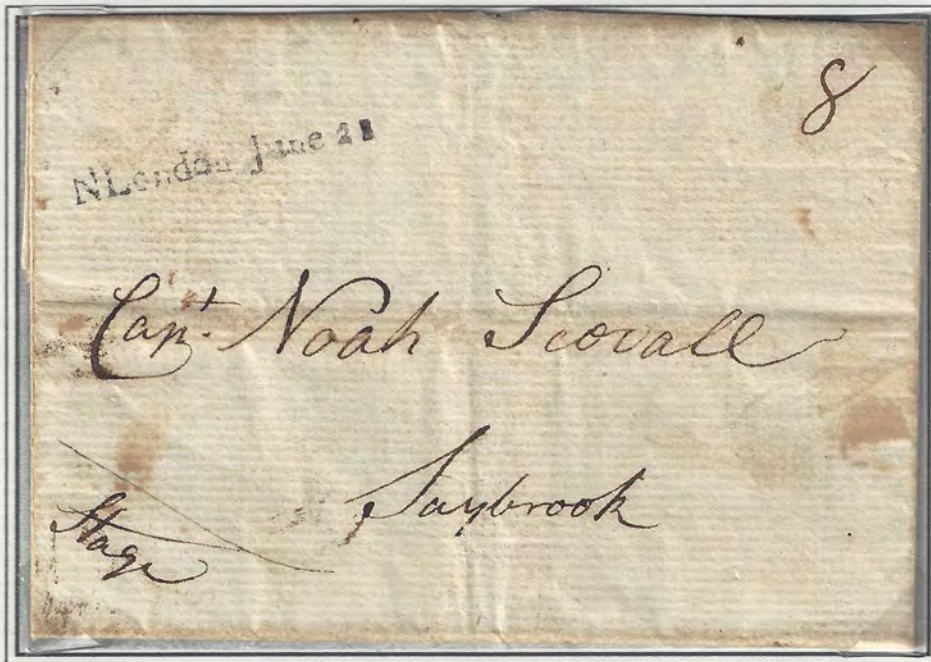 8
NLondon June
Capt. Noah Scovall
Saybrook
Stage